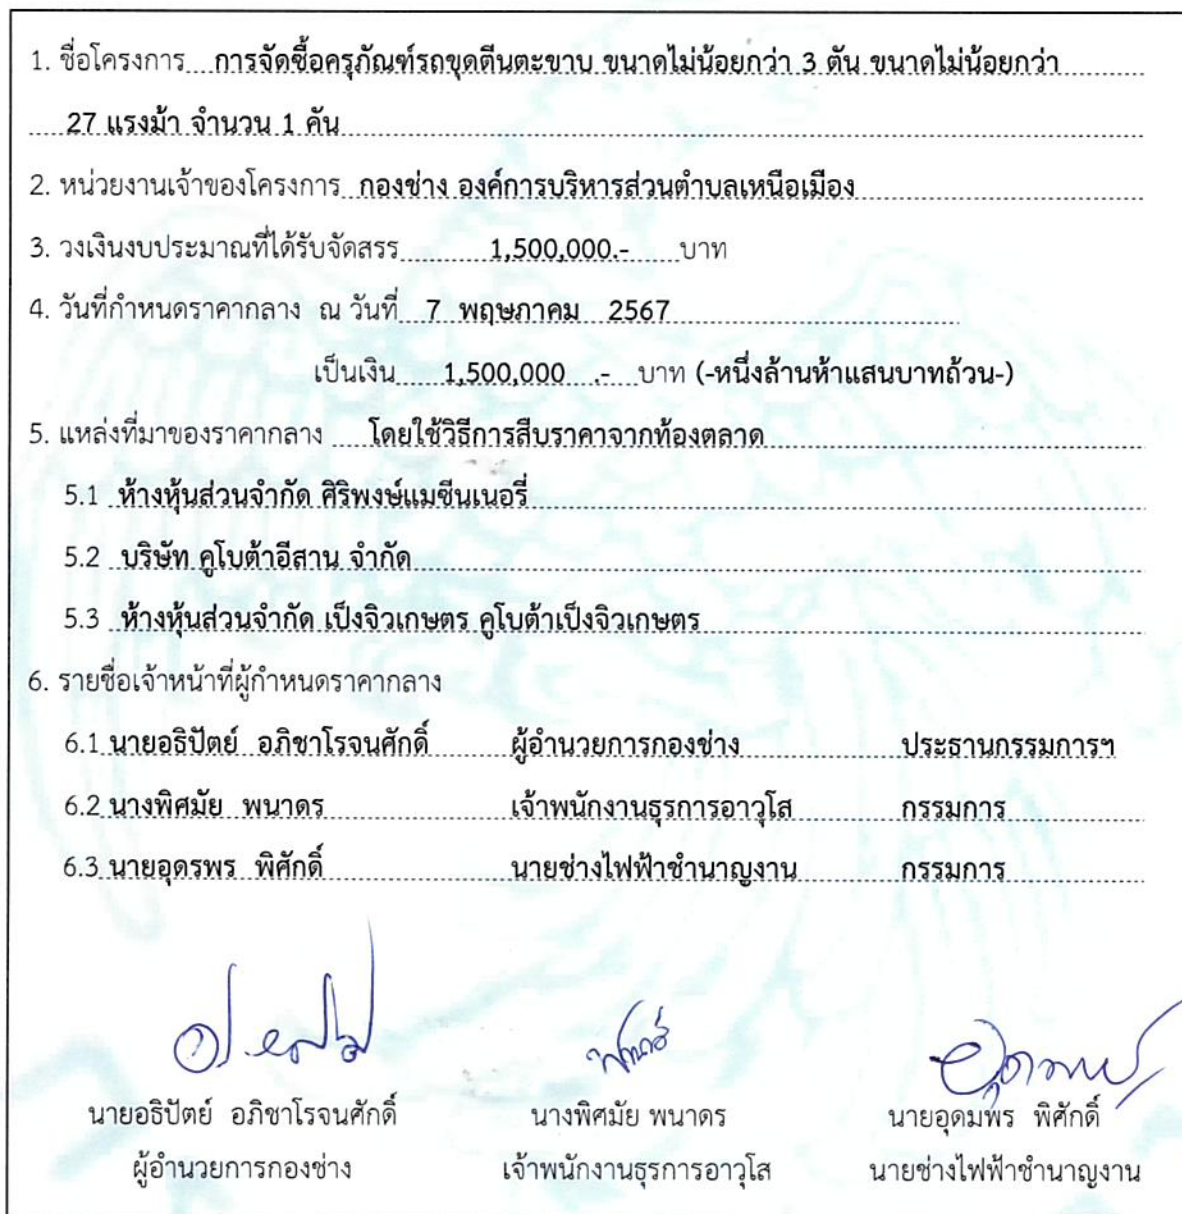 1. ชื่อโครงการ การจัดซื้อครุภัณฑ์รถขุดตีนตะขาบ ขนาดไม่น้อยกว่า 3 ตัน ขนาดไม่น้อยกว่า
27 แรงม้า จำนวน 1 คัน
2. หน่วยงานเจ้าของโครงการ กองช่าง องค์การบริหารส่วนตำบลเหนือเมือง
3. วงเงินงบประมาณที่ได้รับจัดสรร 1,500,000.- บาท
4. วันที่กำหนดราคากลาง ณ วันที่ 7 พฤษภาคม 2567
เป็นเงิน 1,500,000 .- บาท (-หนึ่งล้านห้าแสนบาทถ้วน-)
5. แหล่งที่มาของราคากลาง โดยใช้วิธีการสืบราคาจากท้องตลาด
5.1 ห้างหุ้นส่วนจำกัด ศิริพงษ์แมชีนเนอรี่
5.2 บริษัท คูโบต้าอีสาน จำกัด
5.3 ห้างหุ้นส่วนจำกัด เป็งจิวเกษตร คูโบต้าเป็งจิวเกษตร
6. รายชื่อเจ้าหน้าที่ผู้กำหนดราคากลาง
6.1 นายอธิปัตย์ อภิชาโรจนศักดิ์ ผู้อำนวยการกองช่าง ประธานกรรมการฯ
6.2 นางพิศมัย พนาดร เจ้าพนักงานธุรการอาวุโส กรรมการ
6.3 นายอุดรพร พิศักดิ์ นายช่างไฟฟ้าชำนาญงาน กรรมการ
นายอธิปัตย์ อภิชาโรจนศักดิ์ นางพิศมัย พนาดร นายอุดมพร พิศักดิ์
ผู้อำนวยการกองช่าง เจ้าพนักงานธุรการอาวุโส นายช่างไฟฟ้าชำนาญงาน